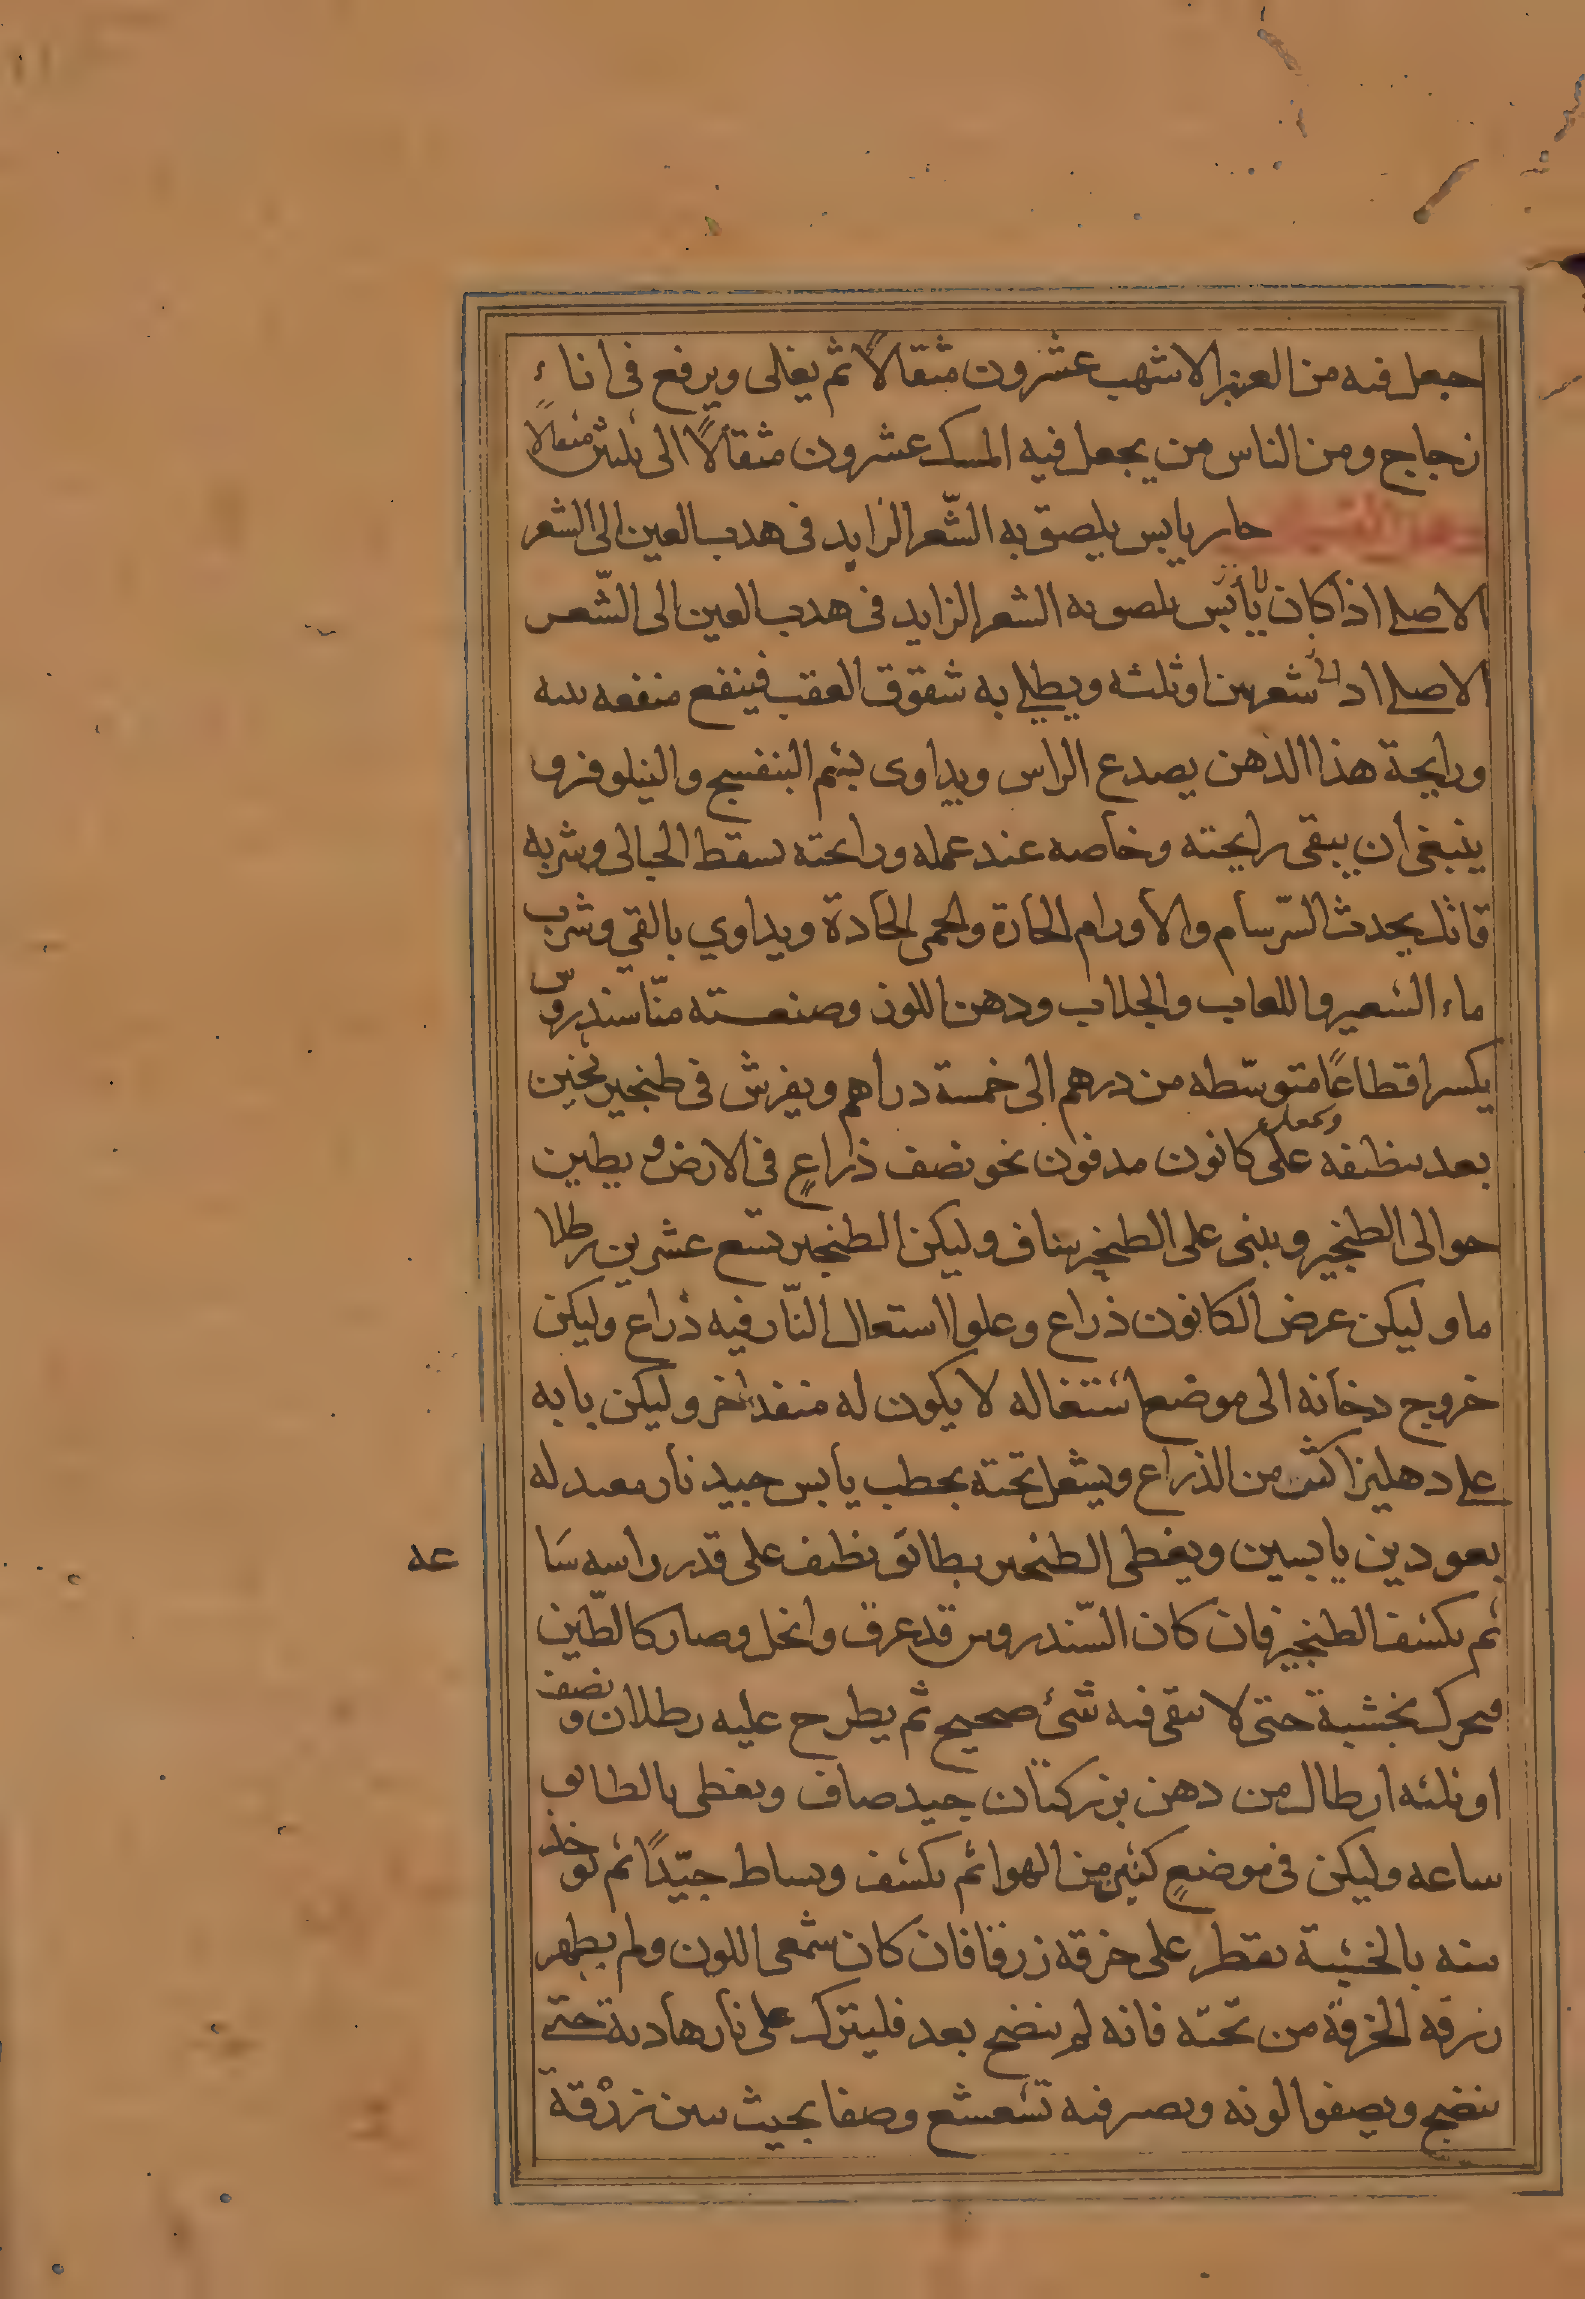 جعل فيه من العنبر الاشهب عشرون مثقالاً ثم يغلى ويرفع فى اناء
زجاج ومن الناس من يجعل فيه المسك عشرون مثقالاً الى ثلثين مثقالاً
حار يابس يلصق به الشّعر الزايد فى هدب العين الى الشعر
الاصلى اذا كان يابس يلصق به الشعر الزايد فى هدب العين الى الشّعر
الاصلى اذا شعرتين او ثلثه ويطلى به شقوق العقب فينفع منفعه بينه
ورايحة هذا الدهن يصدع الراس ويداوى بشم البنفسج والنيلوفر و
ينبغى ان يبقى رايحته وخاصه عند عمله ورايحته تسقط الحبالى وشربه
قاتل يحدث السّرسام والأورام الحارة والحمى الحادة ويداوي بالقي وشرب
ماء الشعير واللعاب والجلاب ودهن اللوز وصنعته منّا سندروس
يكسر اقطاعًا متوسّطه من درهم الى خمسة دراهم ويفرش فى طنجير ثخين
بعد تنظيفه ويجعل على كانون مدفون نحو نصف ذراعٍ فى الارض و يطين
حوالى الطنجير ويبنى على الطنجير بناف وليكن الطنجير تسع عشرين رطلا
ما وليكن عرض الكانون ذراع وعلو استعال النّار فيه ذراع وليكن
خروج دخانه الى موضع اشتغاله لا يكون له منفد اخر وليكن بابه
على دهليز اكثر من الذراع ويشعل تحته بحطب يابس جيد نار معتدله
بعودين يابسين ويغطى الطنجير بطابق نظيف على قدر راسه سَا
عه
ثم يكشف الطنجير فان كان السّندروس قد عرق وانحل وصار كالطّين
فيحرك بخشبة حتى لا يبقى فيه شئ صحيح ثم يطرح عليه رطلان و نصف
او ثلثه ارطال من دهن بزر كتان جيد صاف ويغطى بالطابق
ساعه وليكن فى موضعٍ كثير من الهوا ثم يكشف ويساط جيّدًا ثم يوخذ
منه بالخشبة يقطر على خرقه زرقا فان كان شمعى اللون ولم يظهر
زرقه الخرقة من تحته فانه لم ينضج بعد فليترك على نار هادية حتى
ينضج ويصفوا لونه ويصير فيه تشعشع وصفا بحيث يبين زرْقة